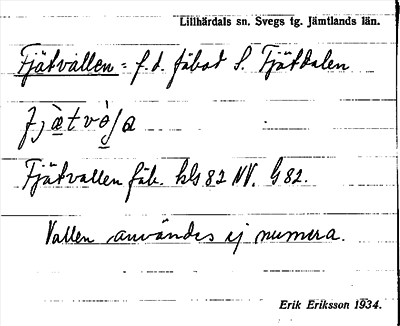 Lillhärdals sn. Svegs tg. Jämtlands län.
Fjätvallen = f.d. fäbod S. Fjätdalen
fjæ̀tvòļa
Fjätvallen fäb. hls 82 NV. G 82.
Vallen användes ej numera.
Erik Eriksson 1934.